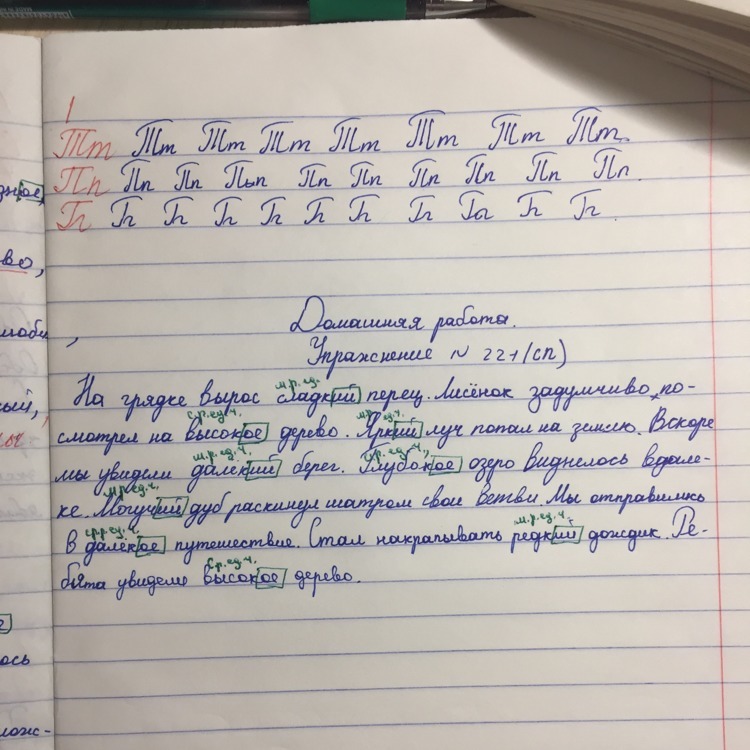 Тт Тт Тт Тт Тт Тт Тт Тт.
Пп Пп Пп Пьп Пп Пп Пп Пп Пп Пп.
Гг Гг Гг Гг Гг Гг Гг Гг Гг Гг Гг.
Домашняя работа.
Упражнение № 221 (СП)
м.р. ед.
На грядке вырос сладкий перец. Лисёнок задумчиво по-
ср. ед. ч. м.р. ед. ч.
смотрел на высокое дерево. Яркий луч попал на землю. Вскоре
м.р. ед. ч. ср. ед. ч.
мы увидели далёкий берег. Глубокое озеро виднелось вдале-
м.р. ед. ч.
ке. Могучий дуб раскинул шатром свои ветви. Мы отправились
ср.р. ед. ч. м.р. ед. ч.
в далёкое путешествие. Стал накрапывать редкий дождик. Ре-
ср. ед. ч.
бята увидели высокое дерево.
ое,
во,
ось